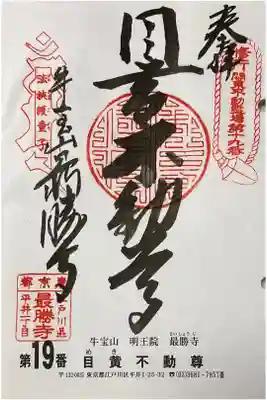 奉拝
関東不動霊場第十九番
目黄不動尊
法挾護童子
牛宝山最勝寺
東京都江戸川区
平井一丁目
最勝寺
さいしょうじ
牛宝山 明王院 最勝寺
めき
第19番 目黄不動尊
東京都江戸川区平井1-25-32